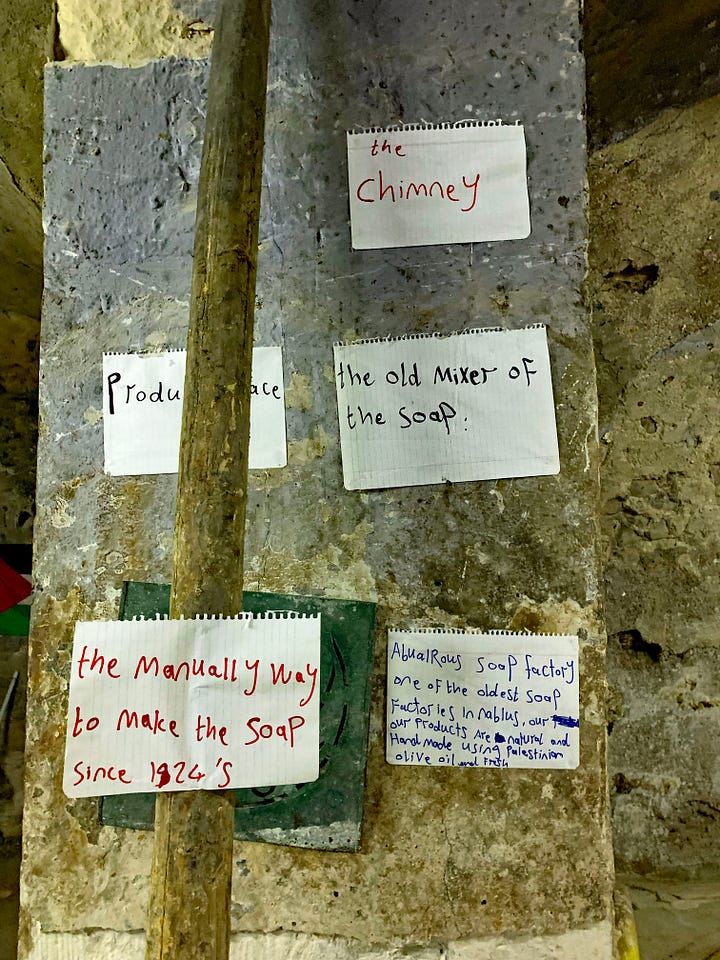 the
Chimney
Produ ace
the old Mixer of
the Soap.
the Manually Way
to Make the Soap
Since 1924's
AbualRous Soap factory
one of the oldest Soap
Factories In nablus, our
our Products Are natural and
Hand made using Palestinian
olive oil and Fresh